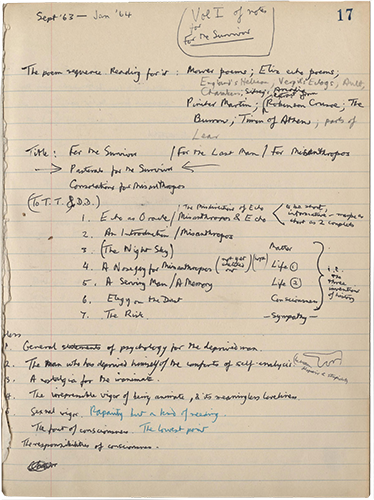 Sept '63 — Jan '64
Vol I of notes
for
For the Survivor
17
The poem sequence Reading for it : Mower poems ; Eliz echo poems ;
England's Helicon, Vergil's Eclogs, Ault,
Chambers,
Pincher Martin ; Robinson Crusoe ; The
Burrow ; Timon of Athens ; parts of
Lear
Title : For the Survivor / For the Last Man / For Misanthropos
Pastorals for the Survivor
Consolations for Misanthropos
(To T.T. & D.D.)
1. Echo as Oracle / Misanthropos & Echo
2. An Introduction / Misanthropos
3. (The Night Sky) Matter
4. A Nosegay for Misanthropos Life ①
5. A Serving Man / A Memory Life ②
6. Elegy on the Dust Consciousness
7. The Risk. — Sympathy —
i.e.
the
three
inventions
of history
1. General statements of psychology for the deprived man.
2. The man who has deprived himself of the comforts of self-analysis
3. A nostalgia for the inanimate.
4. The irrepressible vigor of being animate, & its meaningless loveliness.
Sexual vigor. Rapacity but a kind of needing.
The fact of consciousness. The lowest point
The responsibilities of consciousness.